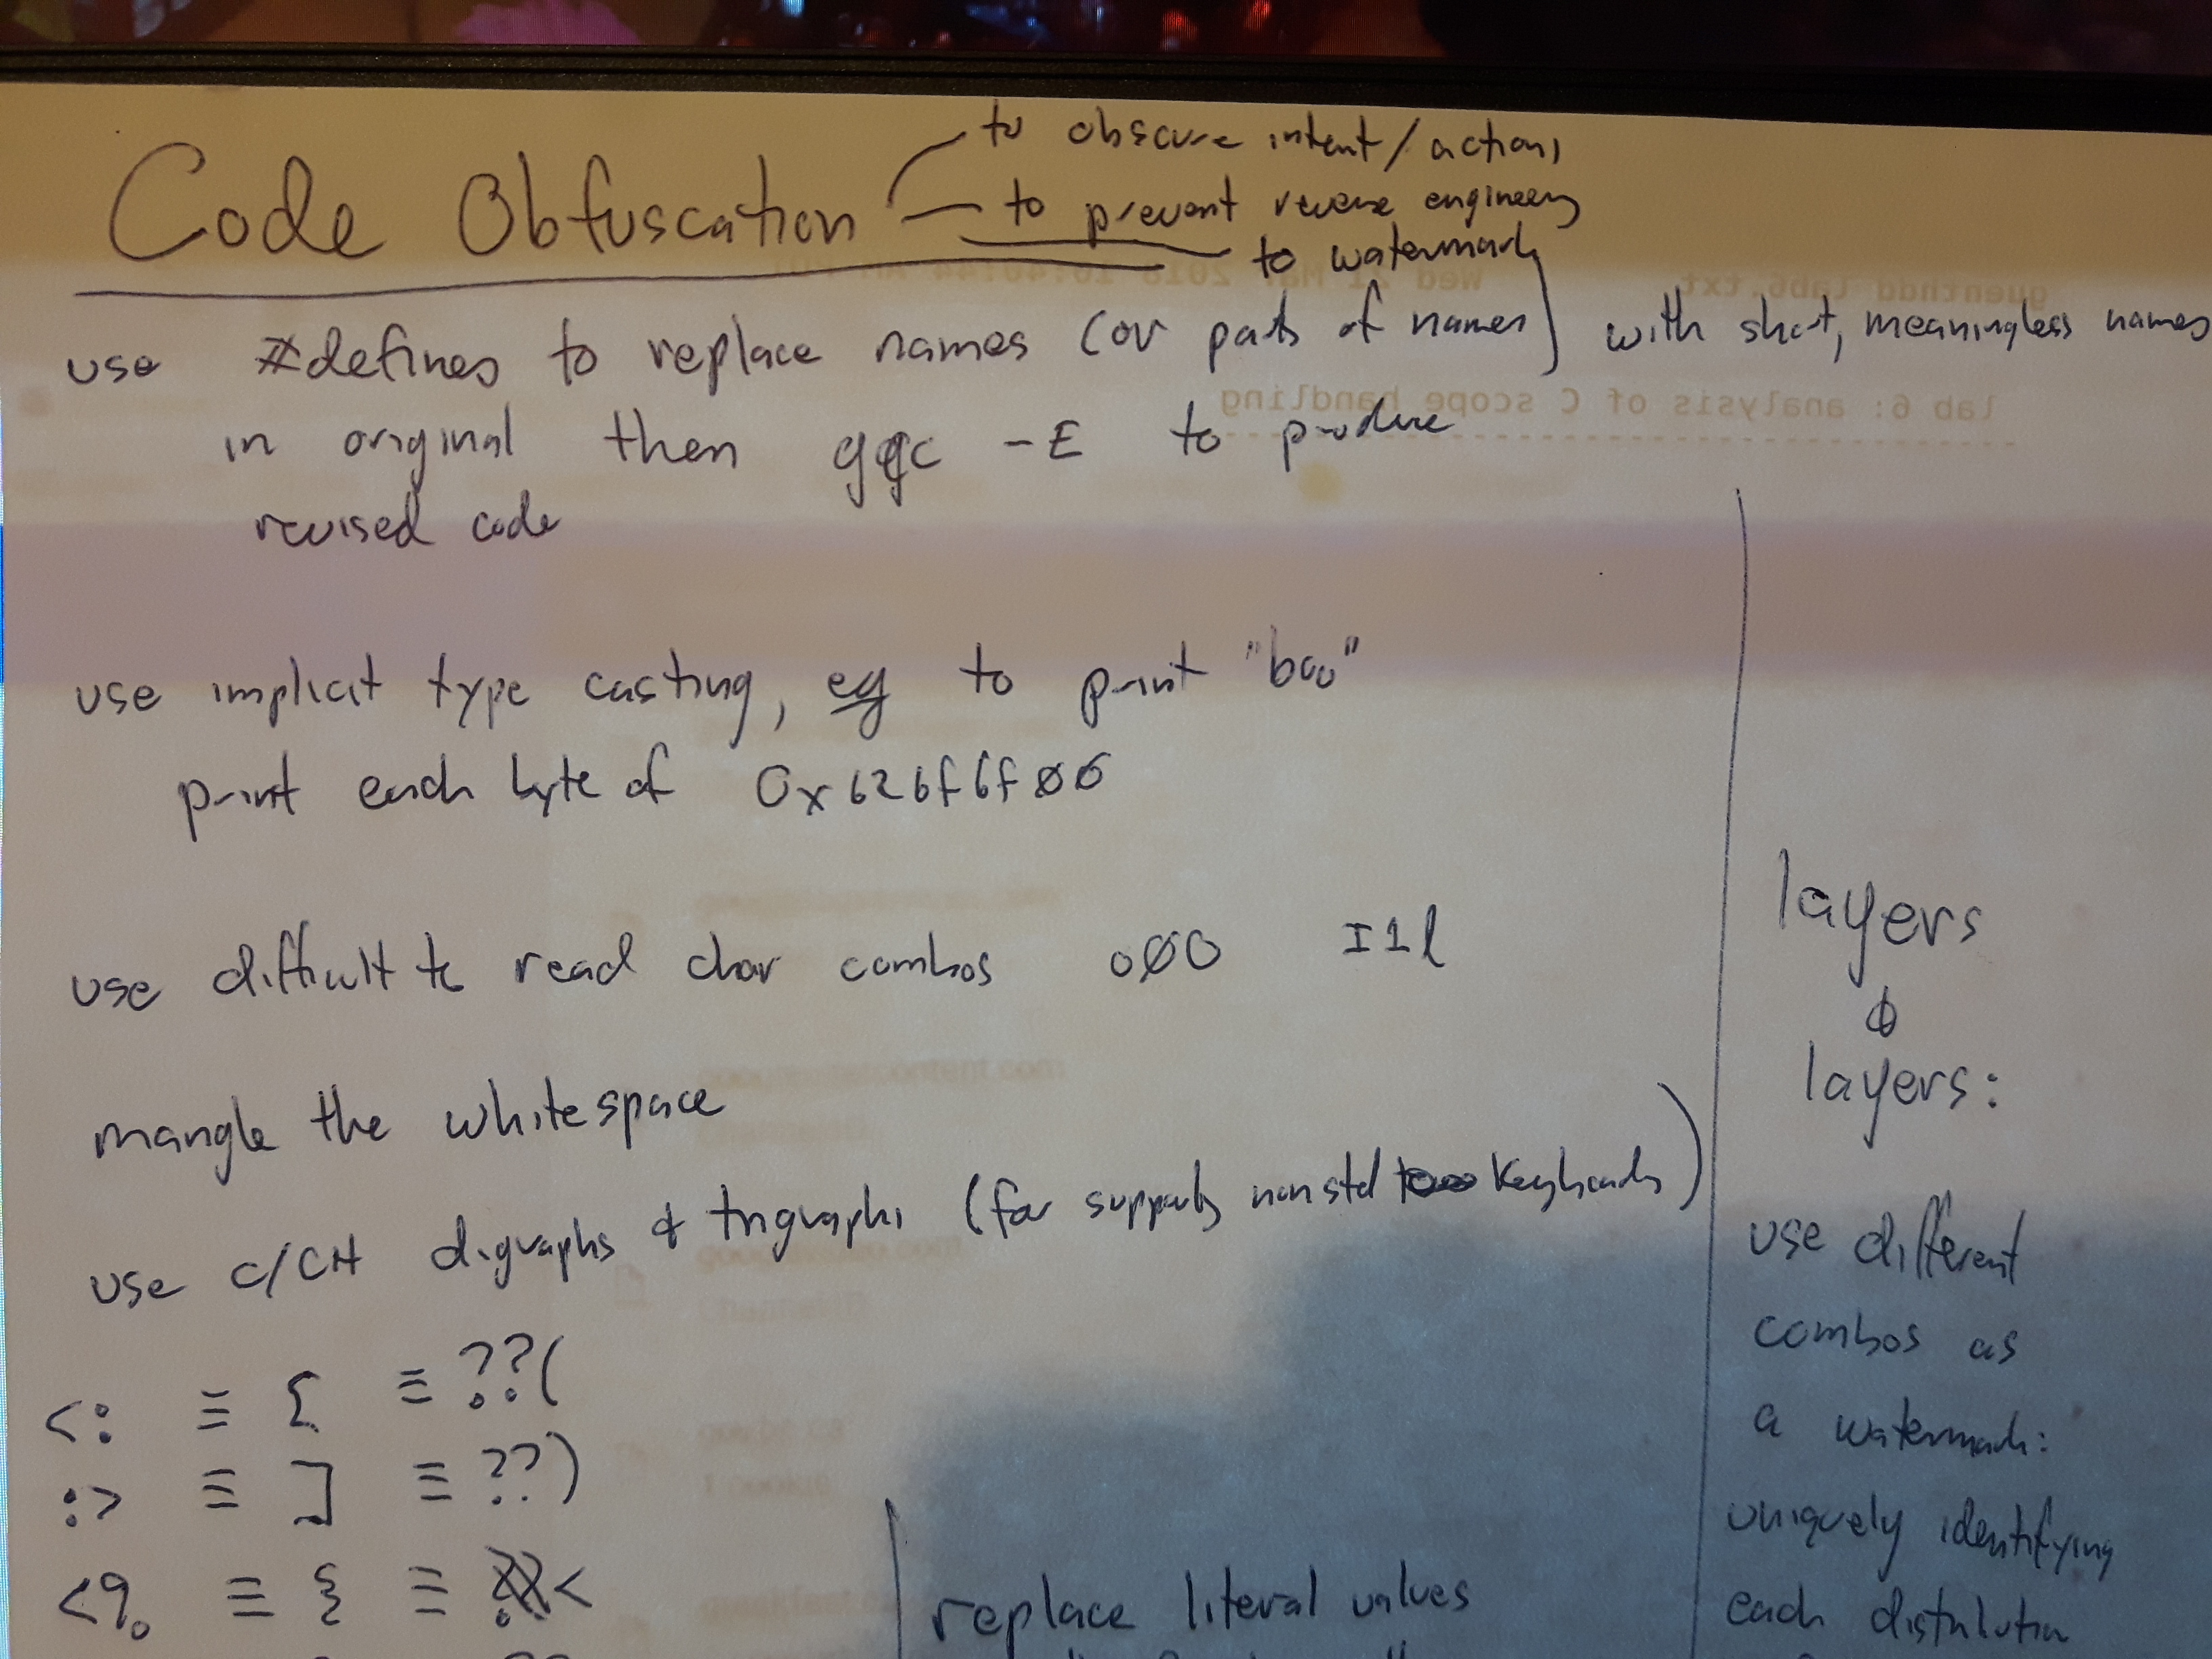 Code Obfuscation
to obscure intent/actions
to prevent reverse engineering
to watermark
use #defines to replace names (or parts of names) with short, meaningless names
in original then gcc -E to produce
revised code
use implicit type casting, eg to print "boo"
print each byte of 0x626f6f00
use difficult to read char combos o00 I1l
mangle the whitespace
use C/C++ digraphs & trigraphs (for supporting non std keyboards)
<: ≡ [ ≡ ??(
:> ≡ ] ≡ ??)
<% ≡ { ≡ ??<
replace literal values
layers
&
layers:
use different
combos as
a watermark:
uniquely identifying
each distribution
guenthdd lab6.txt Wed 21 Mar 2018 10:40:44
lab 6: analysis of C scope handling